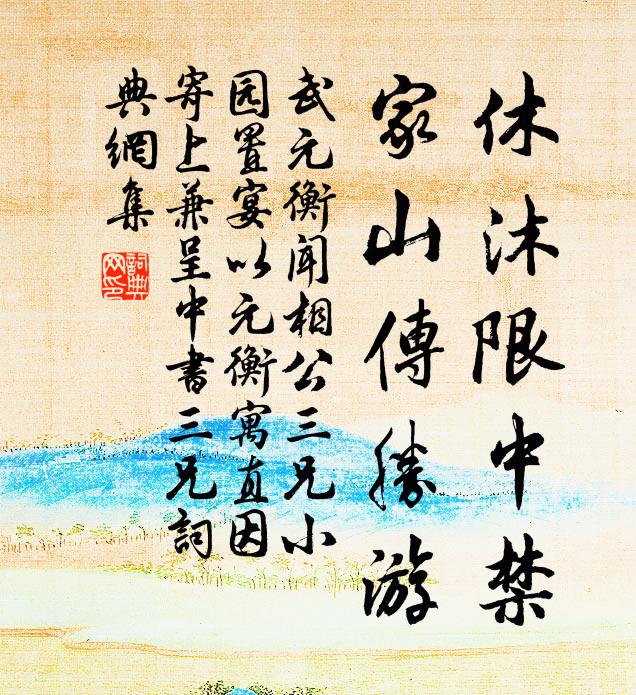 休沐限中禁
家山傳勝游
武元衡闻相公三兄小
园置宴以元衡寓直因
寄上兼呈中書三兄詞
典網集
詞典
网印